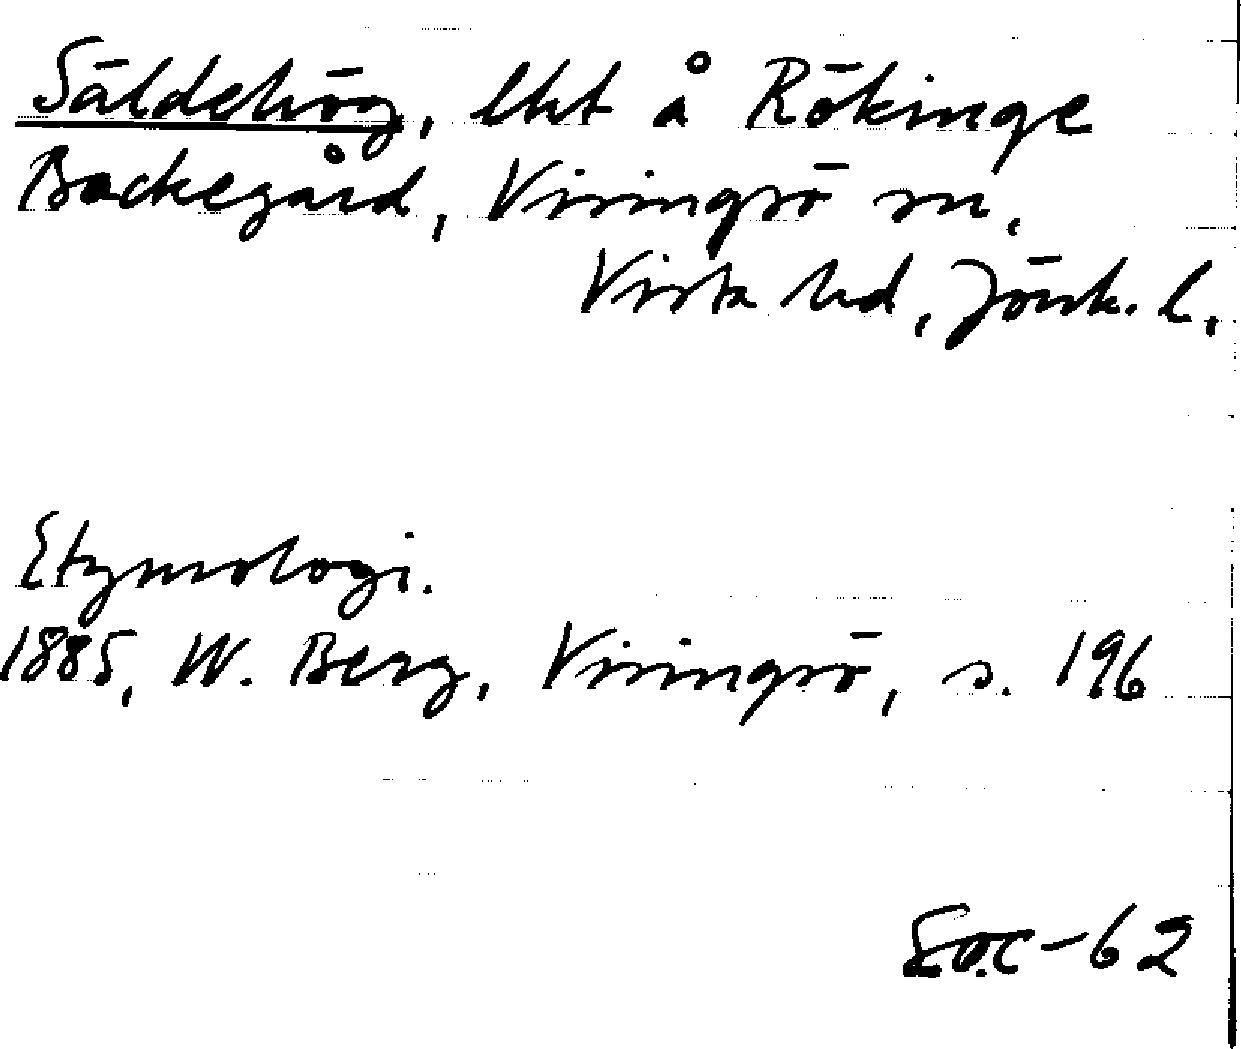 Säldehög, lht å Rökinge
Backegård, Visingsö sn,
Vista hd, Jönk. l.,
Etymologi.
1885, W. Berg, Visingsö, s. 196
-62